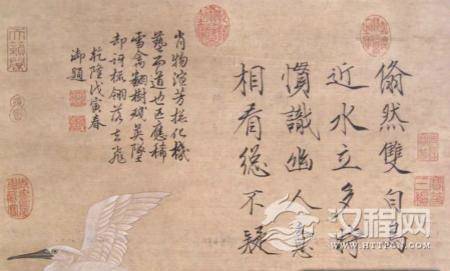 翛然雙白鳥
近水立多時
慣識幽人意
相看總不疑
肖物渲芳化機
藝而道也正應稀
雪禽翻樹英墮
却訝振翎落去飛
乾隆戊寅春
御題
汉程网
WWW.HTTPCN.COM